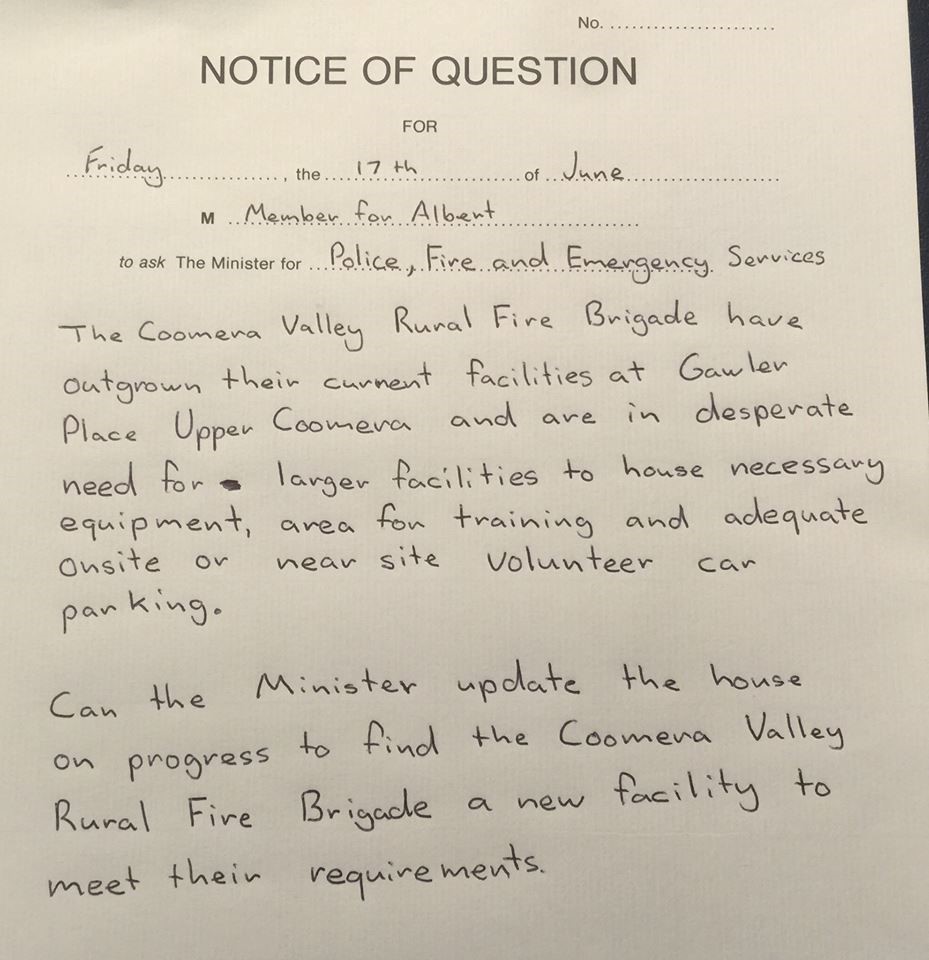 No. ............................
NOTICE OF QUESTION
FOR
Friday, the 17th of June
M Member for Albert
to ask The Minister for Police, Fire and Emergency Services
The Coomera Valley Rural Fire Brigade have
outgrown their current facilities at Gawler
Place Upper Coomera and are in desperate
need for larger facilities to house necessary
equipment, area for training and adequate
onsite or near site volunteer car
parking.
Can the Minister update the house
on progress to find the Coomera Valley
Rural Fire Brigade a new facility to
meet their requirements.